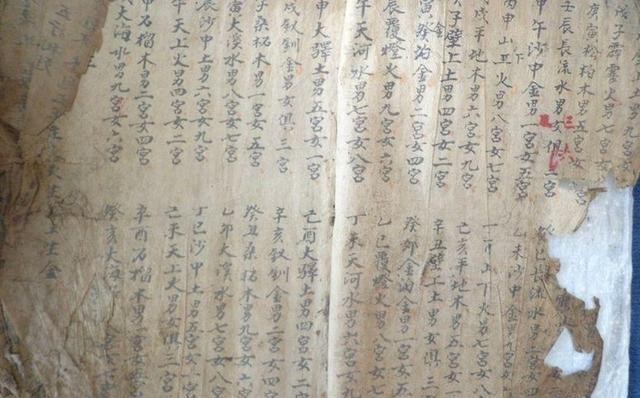 戊子霹靂火男七宮女
庚寅松柏木男五宮女
壬辰長流水男女俱三宮
甲午沙中金男一宮女五宮
丙申山下火男八宮女七宮
戌平地木男六宮女九宮
子壁上土男四宮女二宮
寅金泊金男二宮女四宮
辰覆燈火男九宮女六宮
午天河水男七宮女八宮
申大驛土男五宮女一宮
戌釵釧金男女俱三宮
子桑柘木男一宮女五宮
寅大溪水男八宮女七宮
辰沙中土男六宮女九宮
午天上火男四宮女二宮
申石榴木男二宮女四宮
大海水男九宮女六宮
巳長流水男二宮女四
乙未沙中金男九宮女
火男七宮女八
己亥平地木男五宮女一
辛丑壁上土男女俱三宮
癸卯金泊金男一宮女五
乙巳覆燈火男八宮女七
丁未天河水男六宮女九
己酉大驛土男四宮女二宮
辛亥釵釧金男二宮女四宮
癸丑桑柘木男九宮女六宮
乙卯大溪水男七宮女八宮
丁巳沙中土男五宮女一宮
己未天上火男女俱三宮
辛酉石榴木男一宮女五宮
癸亥大海水男八宮女七宮